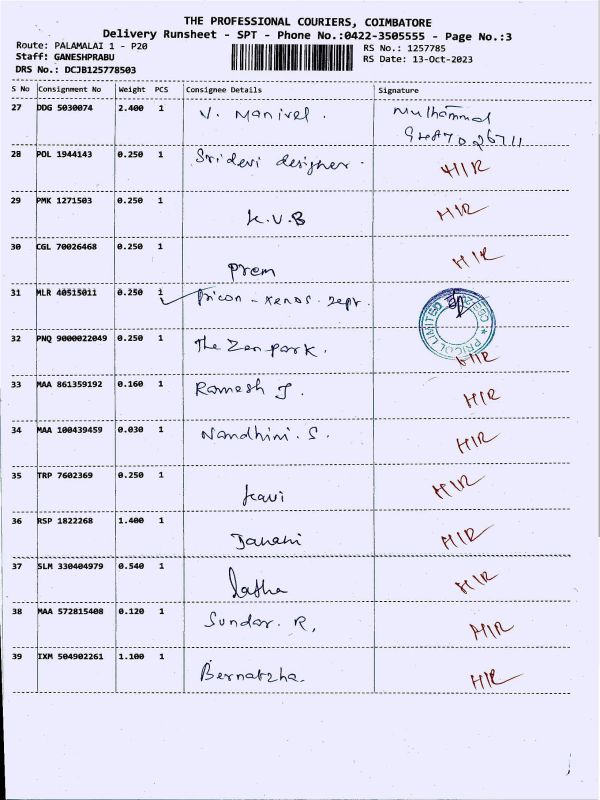 THE PROFESSIONAL COURIERS, COIMBATORE
Delivery Runsheet - SPT - Phone No.:0422-3505555 - Page No.:3
Route: PALAMALAI 1 - P20 RS No.: 1257785
Staff: GANESHPRABU RS Date: 13-Oct-2023
DRS No.: DCJB125778503
S No Consignment No Weight PCS Consignee Details Signature
27 DDG 5030074 2.400 1 V. Manivel.
28 POL 1944143 0.250 1 Sridevi designer. HIR
29 PMK 1271503 0.250 1 K.V.B HIR
30 CGL 70026468 0.250 1 Prem HIR
31 MLR 40515011 0.250 1 Pricon - PRICOL LIMITED
32 PNQ 9000022049 0.250 1 The Zen park. HIR
33 MAA 861359192 0.160 1 Ramesh J. HIR
34 MAA 100439459 0.030 1 Nandhini. S. HIR
35 TRP 7602369 0.250 1 Kavi HIR
36 RSP 1822268 1.400 1 Janani HIR
37 SLM 330404979 0.540 1 Latha HIR
38 MAA 572815408 0.120 1 Sundar. R, HIR
39 IXM 504902261 1.100 1 HIR